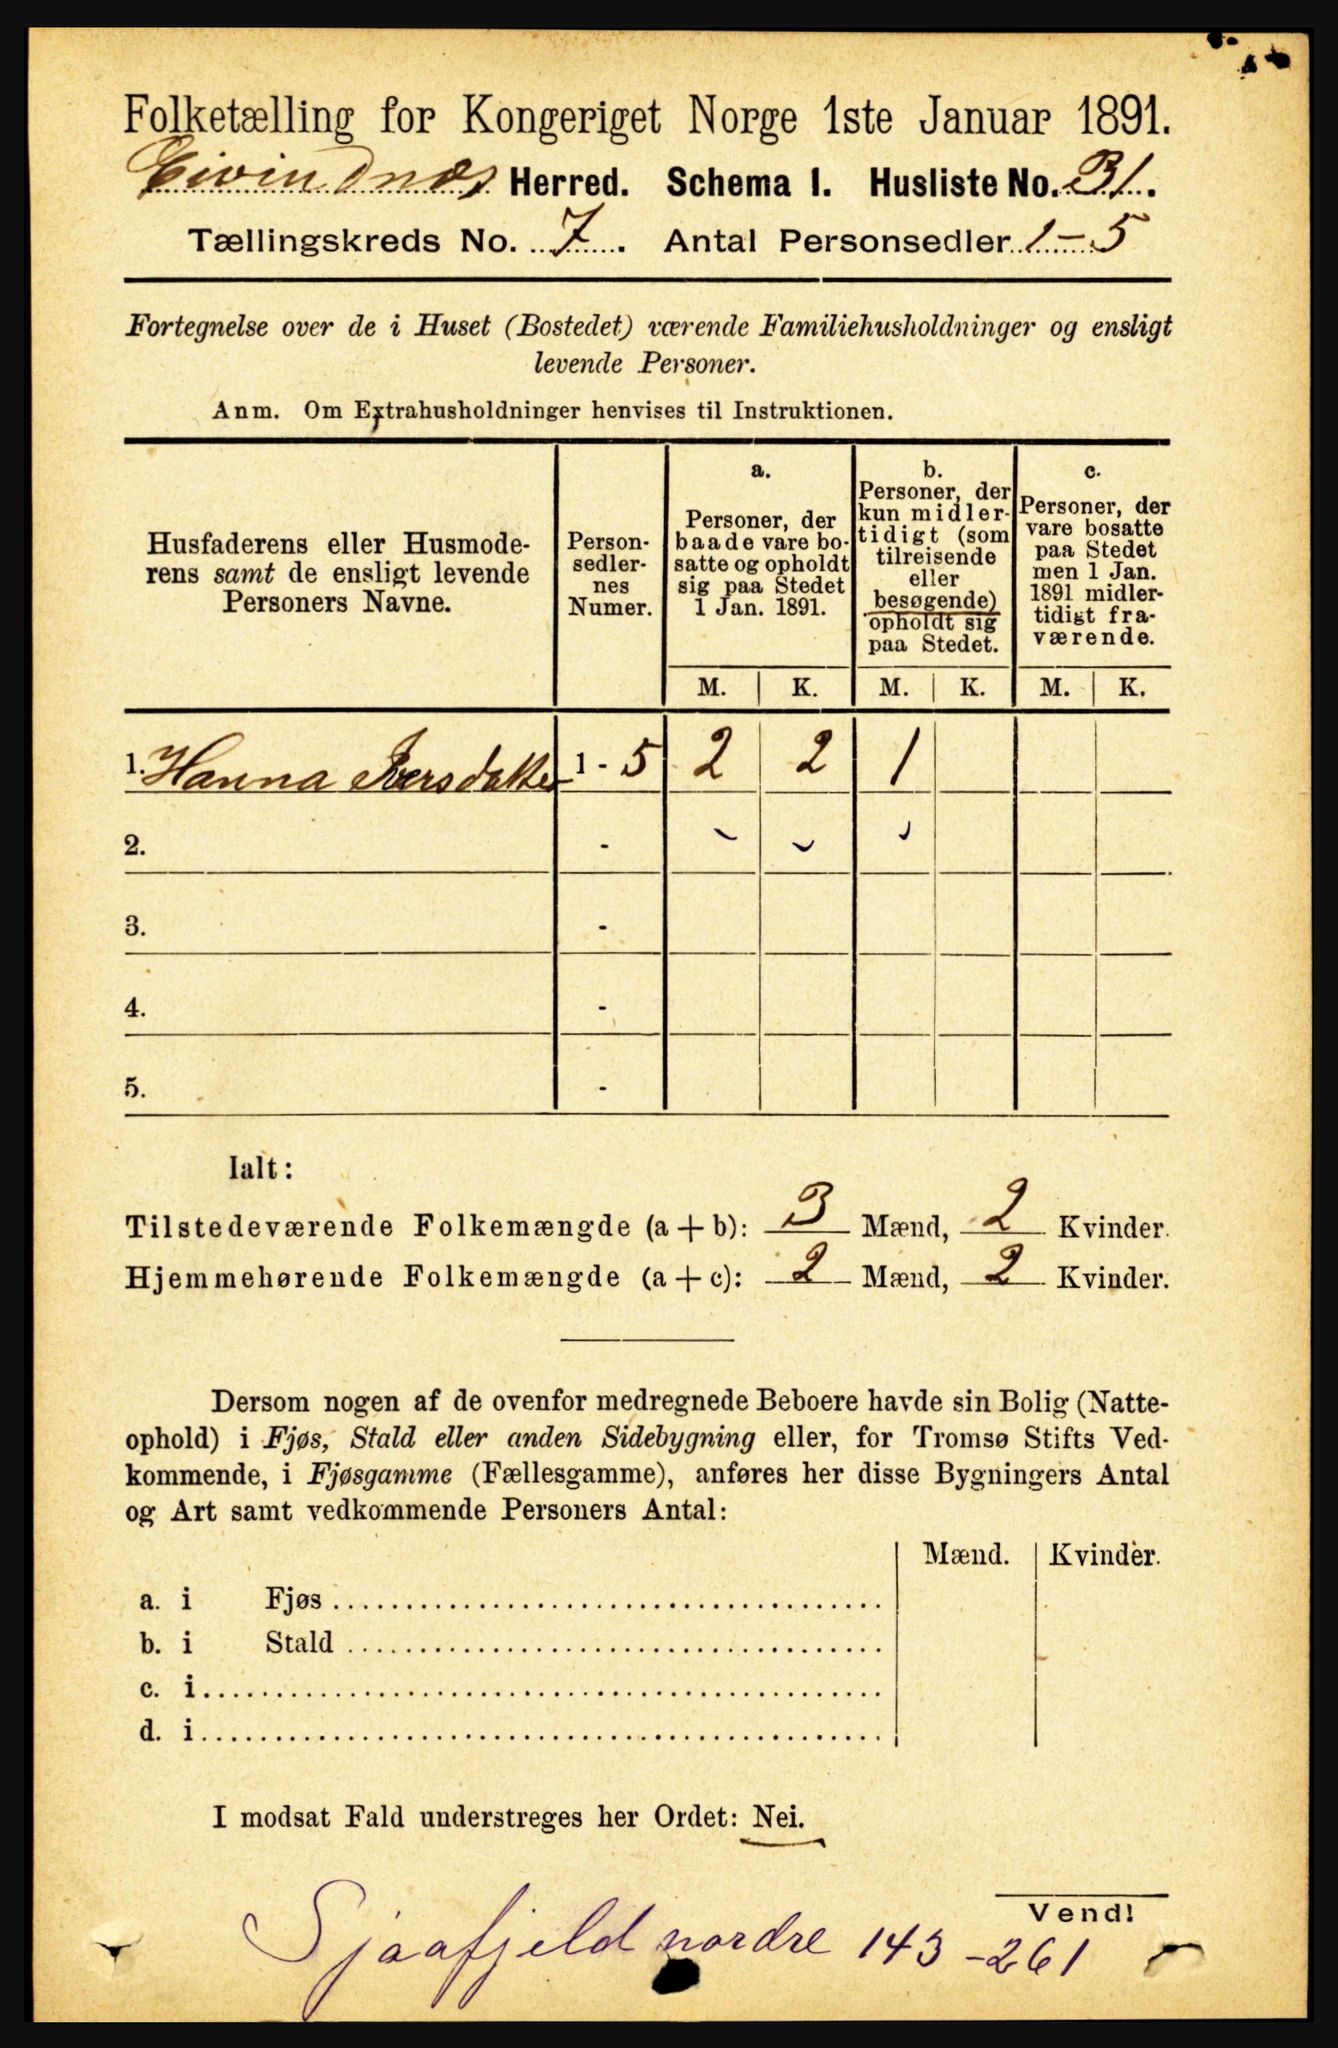 Folketælling for Kongeriget Norge 1ste Januar 1891.
Eivindnæs Herred. Schema I. Husliste No. 31.
Tællingskreds No. 7. Antal Personsedler 1-5
Fortegnelse over de i Huset (Bostedet) værende Familiehusholdninger og ensligt
levende Personer.
Anm. Om Extrahusholdninger henvises til Instruktionen.
Husfaderens eller Husmode-
rens samt de ensligt levende
Personers Navne.
Person-
sedler-
nes
Numer.
a.
Personer, der
baade vare bo-
satte og opholdt
sig paa Stedet
1 Jan. 1891.
b.
Personer, der
kun midler-
tidigt (som
tilreisende
eller
besøgende)
opholdt sig
paa Stedet.
c.
Personer, der
vare bosatte
paa Stedet
men 1 Jan.
1891 midler-
tidigt fra-
værende.
M. K. M. K. M. K.
1. Hanna Iversdatter 1 - 5 2 2 1
2. -
3. -
4. -
5. -
Ialt:
Tilstedeværende Folkemængde (a + b): 3 Mænd, 2 Kvinder.
Hjemmehørende Folkemængde (a + c): 2 Mænd, 2 Kvinder.
Dersom nogen af de ovenfor medregnede Beboere havde sin Bolig (Natte-
ophold) i Fjøs, Stald eller anden Sidebygning eller, for Tromsø Stifts Ved-
kommende, i Fjøsgamme (Fællesgamme), anføres her disse Bygningers Antal
og Art samt vedkommende Personers Antal:
Mænd. Kvinder.
a. i Fjøs
b. i Stald
c. i
d. i
I modsat Fald understreges her Ordet: Nei.
Vend!
Sjaafjeld nordre 143-261